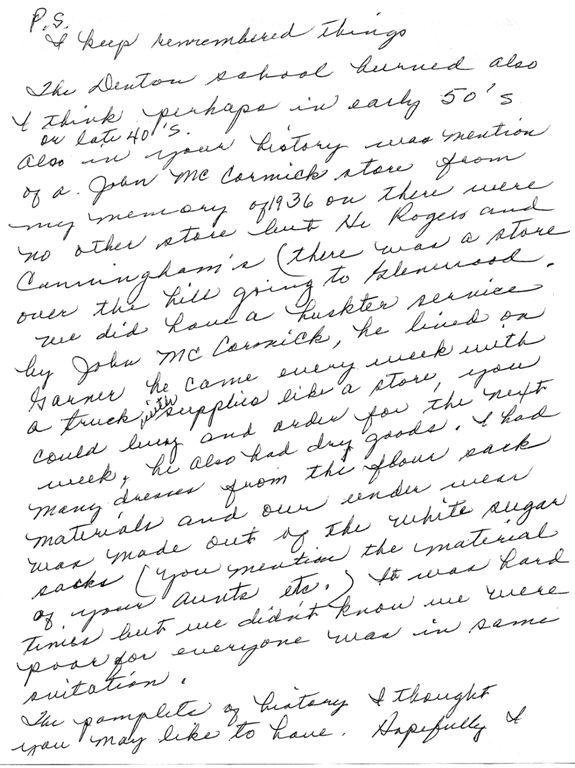 P.S.
I keep remembered things
The Denton school burned also
I think perhaps in early 50's
or late 40's.
Also in your history was mention
of a John McCormick store from
my memory of 1936 on there were
no other store but Hi Rogers and
Cunningham's (there was a store
over the hill going to Glenwood.
We did have a huskter service
by John McCormick, he lived on
Garner he came every week with
a truck with supplies like a store, you
could buy and order for the next
week, he also had dry goods. I had
many dresses from the flour sack
materials and our under wear
was made out of the white sugar
sacks (you mention the material
of your aunts etc.) It was hard
times but we didn't know we were
poor for everyone was in same
suitation.
The pamplets of history I thought
you may like to have. Hopefully I